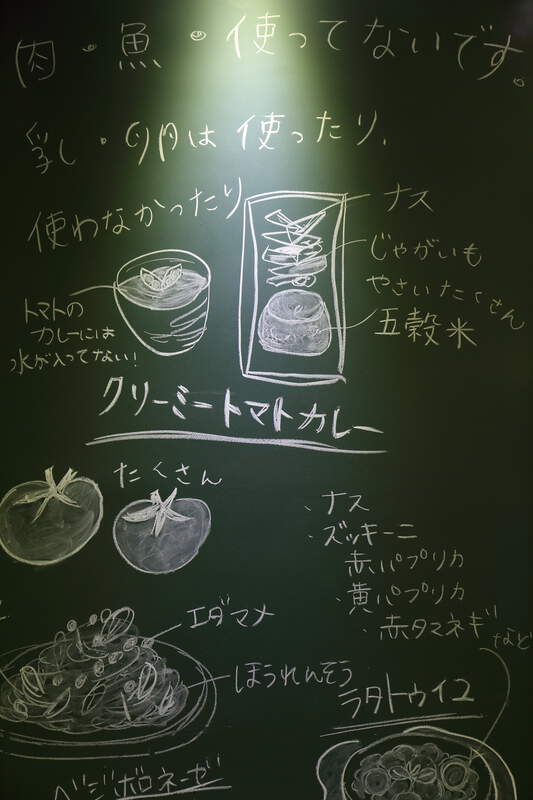 肉・魚・使ってないです。
乳・卵は使ったり、
使わなかったり
ナス
じゃがいも
やさいたくさん
五穀米
トマトの
カレーには
水が入ってない!
クリーミートマトカレー
たくさん
・ナス
・ズッキーニ
赤パプリカ
・黄パプリカ
・赤タマネギなど
エダマメ
ほうれんそう
ラタトゥイユ
ベジボロネーゼ